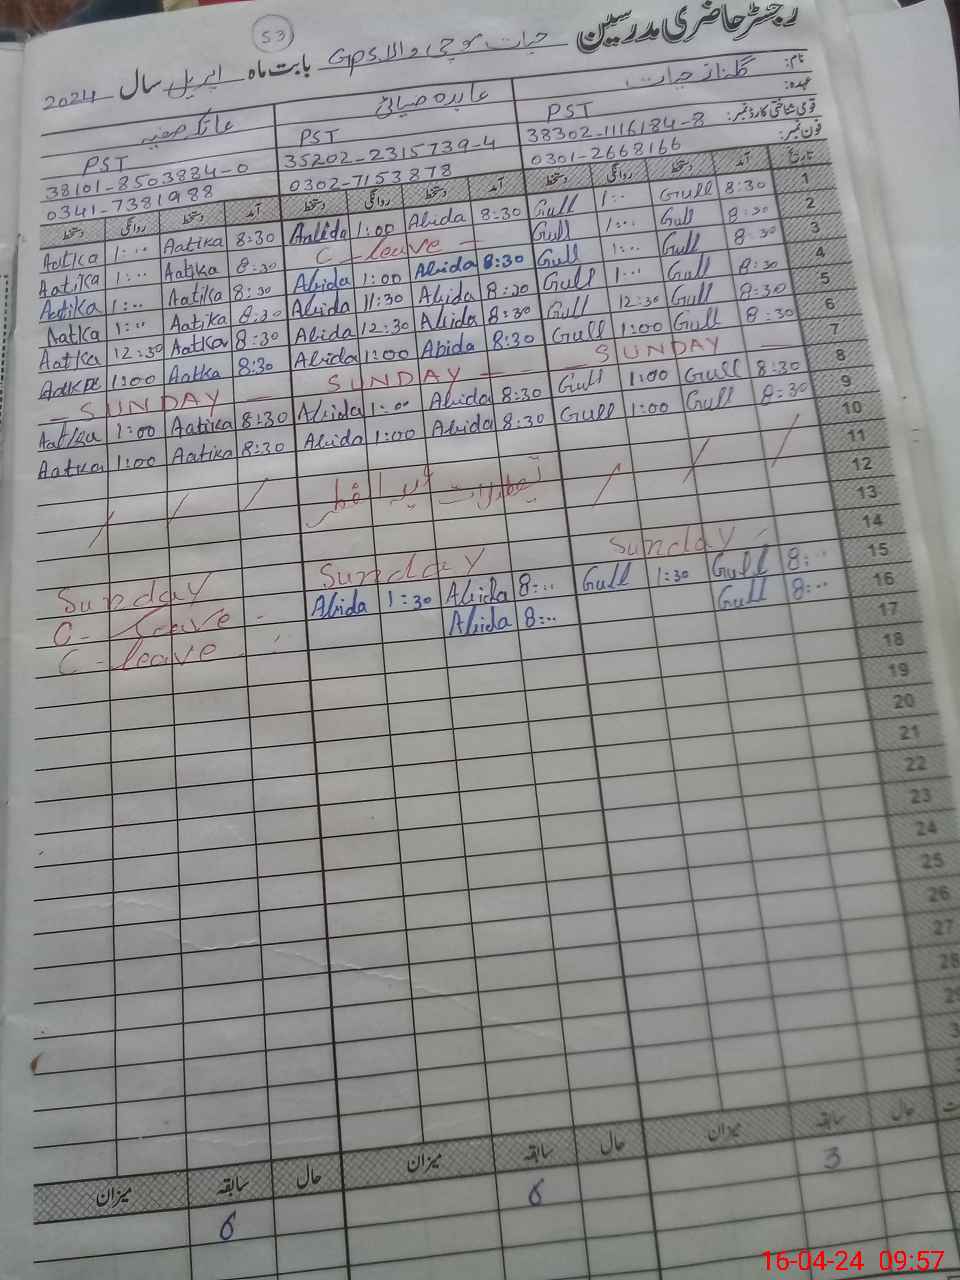 53
رجسٹر حاضری مدرسین
حیات موچی والا GPS بابت ماہ اپریل سال 2024
نام: گلناز حیات عابدہ ضیائی عاتکہ صفیہ
عہدہ: PST PST PST
قومی شناختی کارڈ نمبر: 38302-1116184-8 35202-2315739-4 38101-8503884-0
فون نمبر: 0301-2668166 0302-7153878 0341-7381988
تاریخ آمد دستخط روانگی دستخط آمد دستخط روانگی دستخط آمد دستخط روانگی دستخط
Aatika 1:.. Aatika 8:30 Abida 1:00 Abida 8:30 Gull 1:.. Gull 8:30 1
Aatika 1:.. Aatika 8:30 C-leave - Gull 1:.. Gull 8:30 2
Aatika 1:.. Aatika 8:30 Abida 1:00 Abida 8:30 Gull 1:.. Gull 8:30 3
Aatika 1:.. Aatika 8:30 Abida 11:30 Abida 8:30 Gull 1:.. Gull 8:30 4
Aatika 12:30 Aatika 8:30 Abida 12:30 Abida 8:30 Gull 12:30 Gull 8:30 5
Aatika 1:00 Aatika 8:30 Abida 1:00 Abida 8:30 Gull 1:00 Gull 8:30 6
- SUNDAY - SUNDAY - - SUNDAY - 7
Aatika 1:00 Aatika 8:30 Abida 1:.. Abida 8:30 Gull 1:00 Gull 8:30 8
Aatika 1:00 Aatika 8:30 Abida 1:00 Abida 8:30 Gull 1:00 Gull 8:30 9
10
11
تعطیلات عید الفطر 12
13
Sunday Sunday Sunday - 14
C-leave - Abida 1:30 Abida 8:.. Gull 1:30 Gull 8:.. 15
C-leave Abida 8:.. Gull 8:.. 16
17
18
19
20
21
22
23
24
25
26
27
28
حال سابقہ میزان حال سابقہ میزان حال سابقہ میزان
3 6 6
16-04-24 09:57